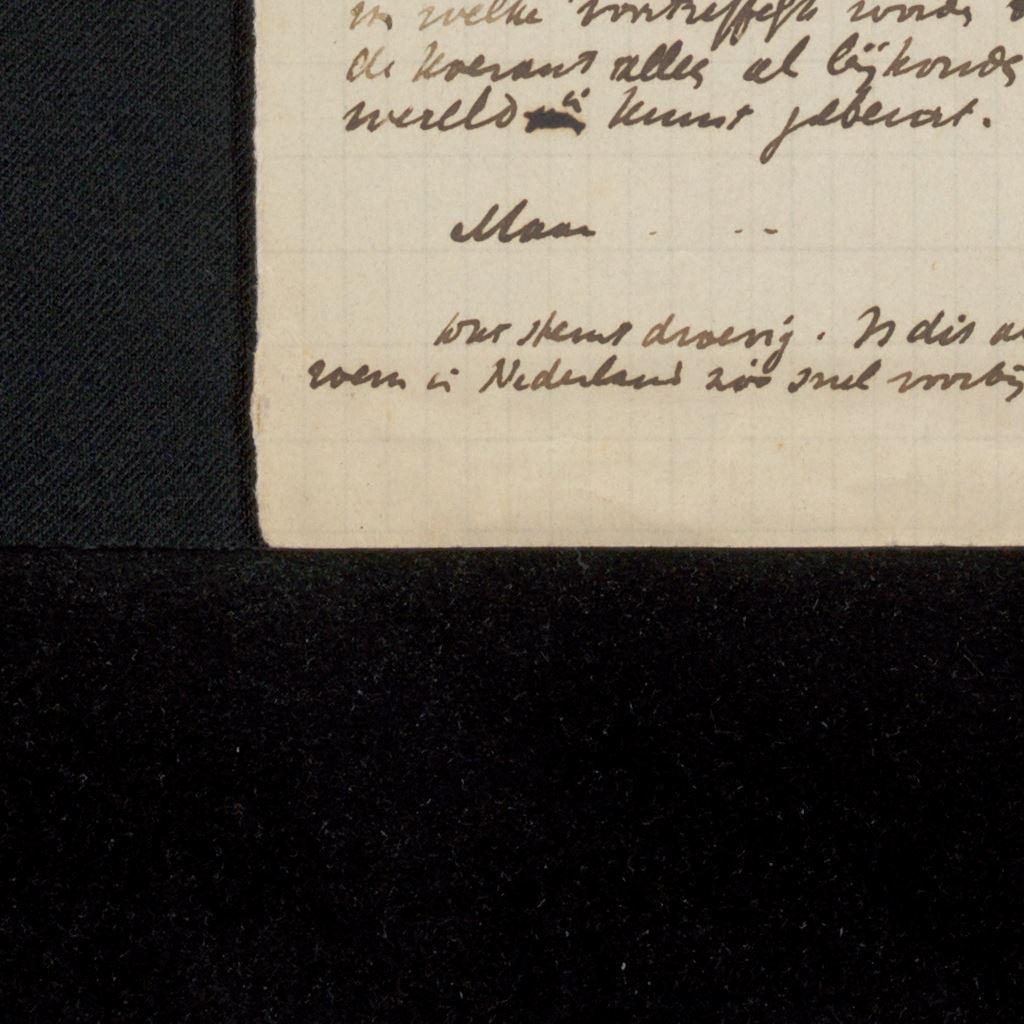 in welke voortreffelijk wordt
de Koerant alles al bij
wereld in kunst gebeurt.
Maar . . .
wat stemt droevig. Is dit
roem in Nederland zóó snel voorbij